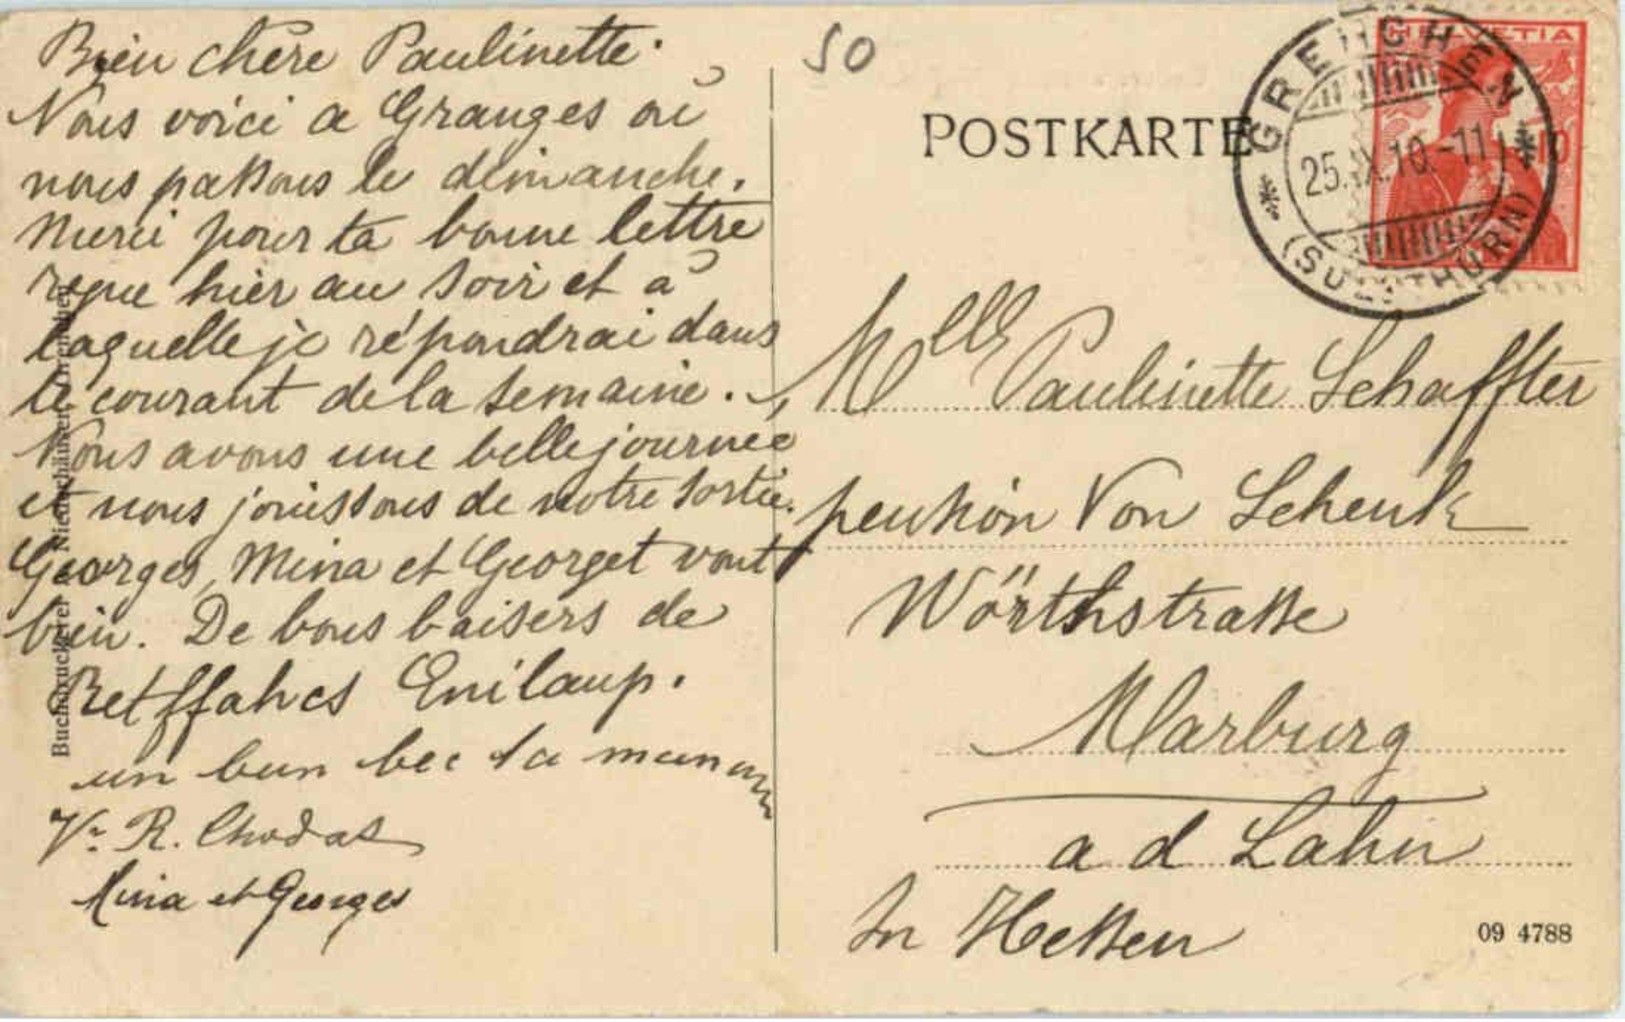 Bien chère Paulinette.
Nous voici a Granges où
nous passons le dimanche.
Merci pour ta bonne lettre
reçue hier au soir et à
laquelle je répondrai dans
le courant de la semaine.
Nous avons une belle journée
et nous jouissons de notre sortie.
Georges, Mina et Georget vont
bien. De bons baisers de
Retffahcs Enilaup.
un bon bec ta maman
Ve R. Chodat
Mina et Georges
Buchdruckerei Niederhäuser, Grenchen
50
POSTKARTE
HELVETIA
10
GRENCHEN
25.IX.10.-11
(SOLOTHURN)
Mlle Paulinette Schaffter
pension Von Schenk
Wörthstrasse
Marburg
a d Lahn
In Hessen
09 4788